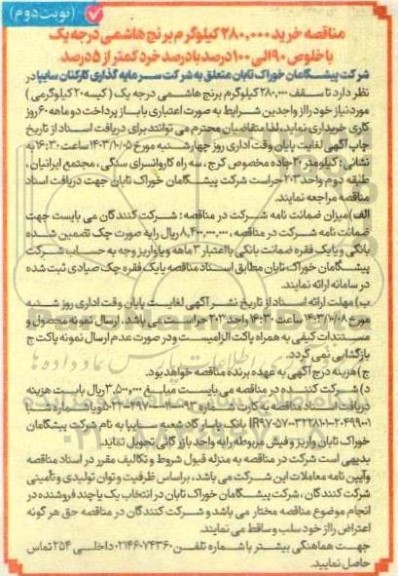 (نوبت دوم)
مناقصه خرید ۲۸۰,۰۰۰ کیلوگرم برنج هاشمی درجه یک
با خلوص ۹۰ الی ۱۰۰ درصد با درصد خرد کمتر از ۵ درصد
شرکت پیشگامان خوراک تابان متعلق به شرکت سرمایه گذاری کارکنان سایپا در
نظر دارد تا سقف ۲۸۰,۰۰۰ کیلوگرم برنج هاشمی درجه یک ( کیسه ۲۰ کیلوگرمی )
مورد نیاز خود را از واجدین شرایط به صورت اعتباری با باز پرداخت دو ماهه ۶۰ روز
کاری خریداری نماید، لذا متقاضیان محترم می توانند برای دریافت اسناد از تاریخ
چاپ آگهی لغایت پایان وقت اداری روز چهارشنبه مورخ ۱۴۰۳/۱۰/۰۵ ساعت ۱۶:۳۰ به
نشانی : کیلومتر ۲۰ جاده مخصوص کرج، سه راه کاروانسرای سنگی، مجتمع ایرانیان ،
طبقه دوم واحد ۲۰۳ حراست شرکت پیشگامان خوراک تابان جهت دریافت اسناد
مناقصه مراجعه نمایند.
الف) میزان ضمانت نامه شرکت در مناقصه : شرکت کنندگان می بایست جهت
ضمانت نامه شرکت در مناقصه ، ۸,۴۰۰,۰۰۰,۰۰۰ ریال را به صورت چک تضمین شده
بانکی و یا یک فقره ضمانت بانکی با اعتبار ۳ ماهه و یا واریز وجه به حساب شرکت
پیشگامان خوراک تابان مطابق اسناد مناقصه یا یک فقره چک صیادی ثبت شده
در سامانه ارائه نمایند.
ب) مهلت ارائه اسناد از تاریخ نشر آگهی لغایت پایان وقت اداری روز شنبه
مورخ ۱۴۰۳/۱۰/۰۸ ساعت ۱۴:۳۰ واحد ۲۰۳ حراست می باشد . ارسال نمونه محصول و
مستندات کیفی به همراه پاکت الزامیست و در صورت عدم ارسال نمونه پاکت ج
بازگشایی نمی گردد.
ج) هزینه درج آگهی به عهده برنده مناقصه خواهد بود.
د) شرکت کننده در مناقصه می بایست مبلغ ۳,۵۰۰,۰۰۰ ریال بابت هزینه
دریافت اسناد مناقصه به کارت شماره
بانک پاسارگاد شعبه سایپا به نام شرکت پیشگامان
خوراک تابان واریز و فیش مربوطه را به واحد بازرگانی تحویل نماید.
بدیهی است شرکت در مناقصه به منزله قبول شروط و تکالیف مقرر در اسناد مناقصه
و آیین نامه معاملات این شرکت می باشد، بر اساس ظرفیت و توان تولیدی و تأمینی
شرکت کنندگان ، شرکت پیشگامان خوراک تابان در انتخاب یک یا چند فروشنده در
انجام موضوع مناقصه مختار می باشد و شرکت کنندگان در مناقصه حق هر گونه
اعتراض را از خود سلب و ساقط می نمایند.
جهت هماهنگی بیشتر با شماره تلفن ۰۲۱۴۶۰۷۴۳۶۰ داخلی ۲۵۴ تماس
حاصل نمایید.